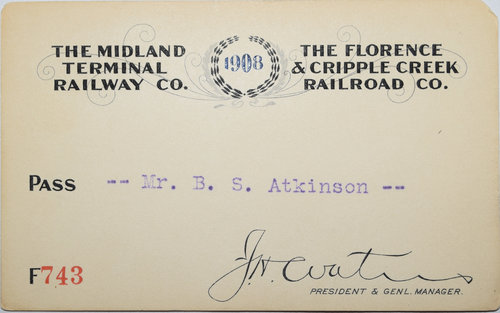 THE MIDLAND TERMINAL RAILWAY CO.
1908
THE FLORENCE & CRIPPLE CREEK RAILROAD CO.
PASS -- Mr. B. S. Atkinson --
F743
J.H. Waters
PRESIDENT & GENL. MANAGER.